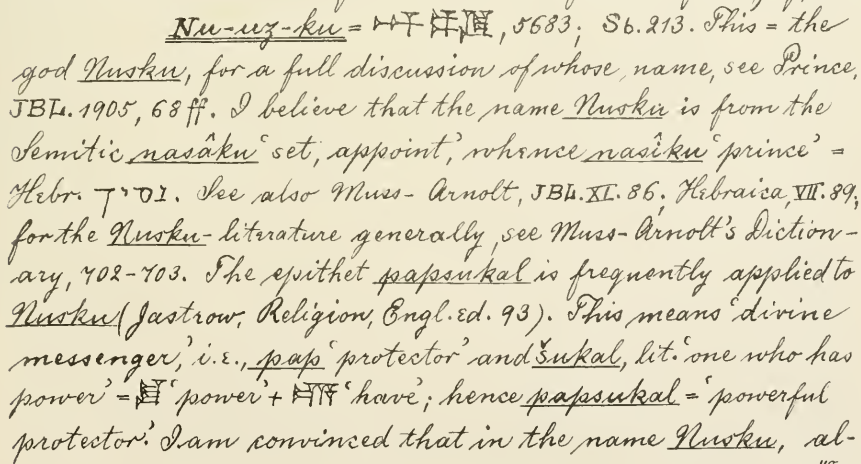 Nu-uz-ku = 𒀭 , 5683; Sb. 213. This = the
god Nusku, for a full discussion of whose name, see Prince,
JBL. 1905, 68 ff. I believe that the name Nusku is from the
Semitic nasâku ‘set, appoint,’ whence nasîku ‘prince’ =
Hebr. נסיך. See also Muss-Arnolt, JBL. XI. 86; Hebraica, VII. 89;
for the Nusku-literature generally, see Muss-Arnolt's Diction-
ary, 702-703. The epithet papsukal is frequently applied to
Nusku (Jastrow, Religion, Engl. ed. 93). This means ‘divine
messenger,’ i.e., pap ‘protector’ and šukal, lit. ‘one who has
power’ = ‘power’ + ‘have’; hence papsukal = ‘powerful
protector.’ I am convinced that in the name Nusku, al-